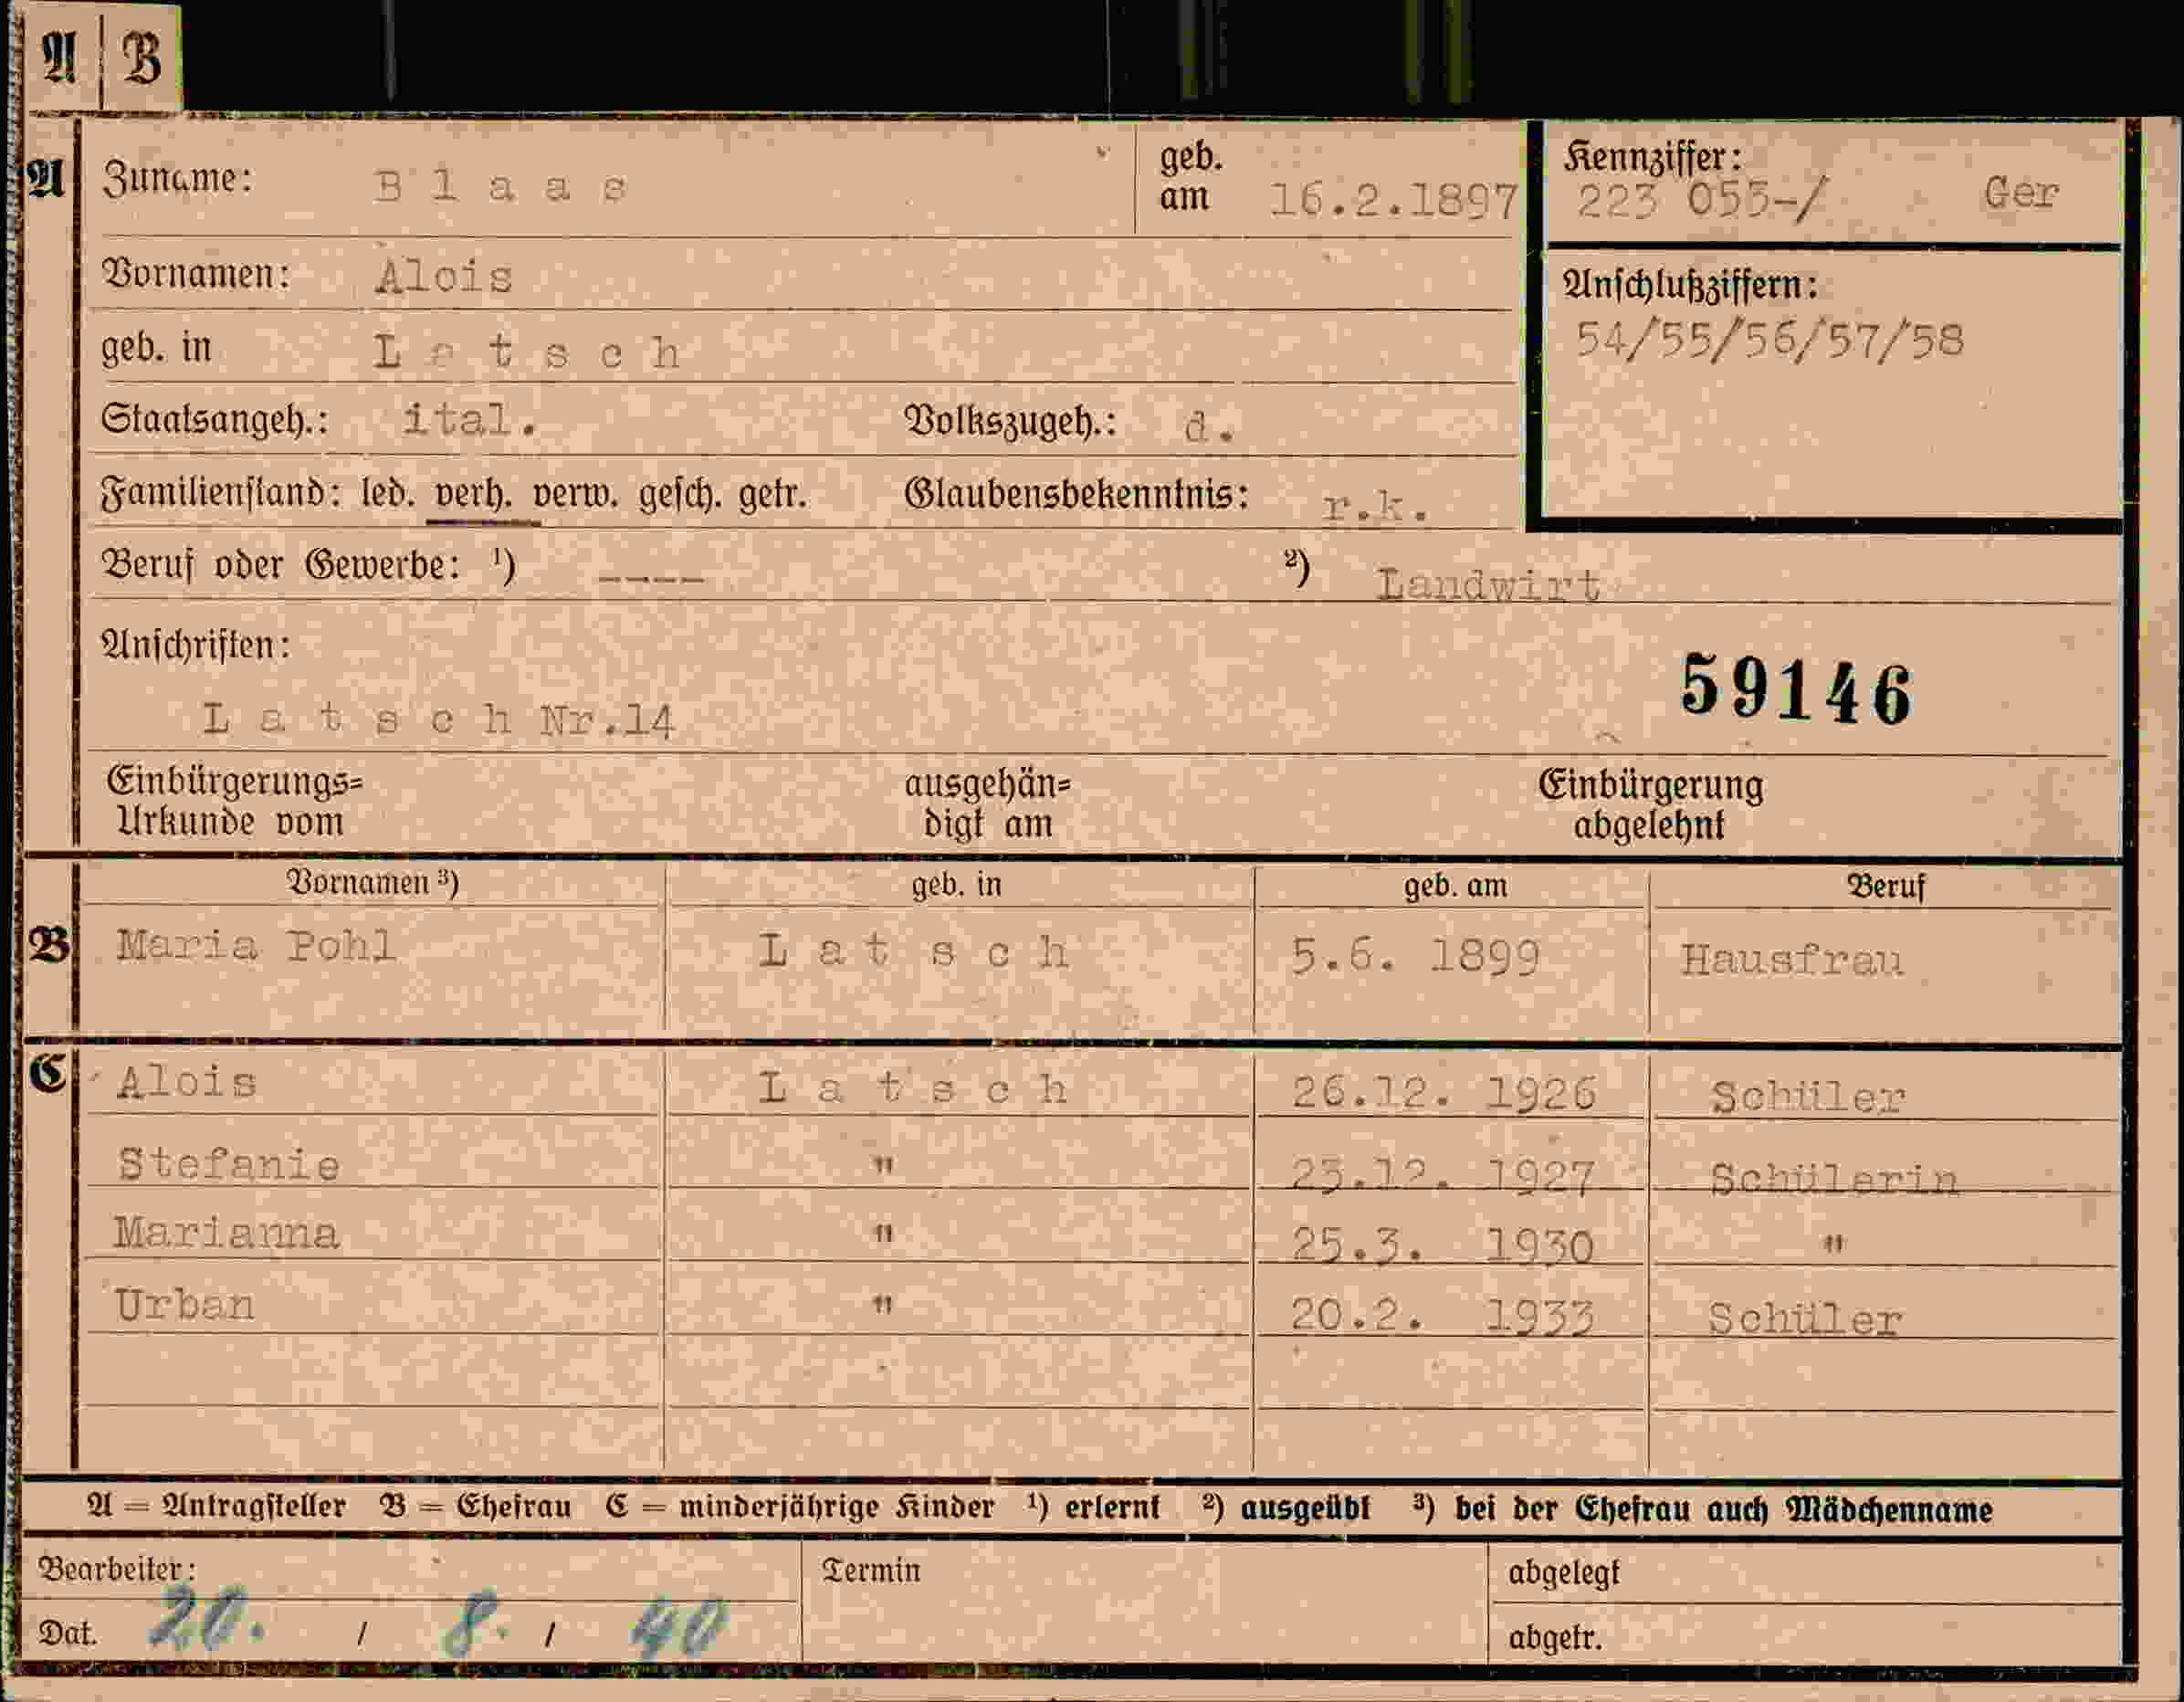 A | B
A Zuname: B l a a s geb. am 16.2.1897 Kennziffer: 223 053-/ Ger
Vornamen: Alois
Anschlußziffern:
54/55/56/57/58
geb. in L a t s c h
Staatsangeh.: ital. Volkszugeh.: d.
Familienstand: led. verh. verw. gesch. getr. Glaubensbekenntnis: r.k.
Beruf oder Gewerbe: ¹) ---- ²) Landwirt
Anschriften:
59146
L a t s c h Nr.14
Einbürgerungs= ausgehän= Einbürgerung
Urkunde vom digt am abgelehnt
Vornamen ³) geb. in geb. am Beruf
B Maria Pohl L a t s c h 5.6. 1899 Hausfrau
C Alois L a t s c h 26.12. 1926 Schüler
Stefanie " 23.12. 1927 Schülerin
Marianna " 25.3. 1930 "
Urban " 20.2. 1933 Schüler
A = Antragsteller B = Ehefrau C = minderjährige Kinder ¹) erlernt ²) ausgeübt ³) bei der Ehefrau auch Mädchenname
Bearbeiter: Termin abgelegt
Dat. 20. / 8. / 40 abgetr.